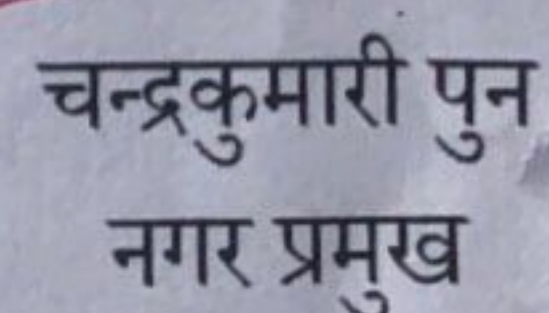 चन्द्रकुमारी पुन
नगर प्रमुख